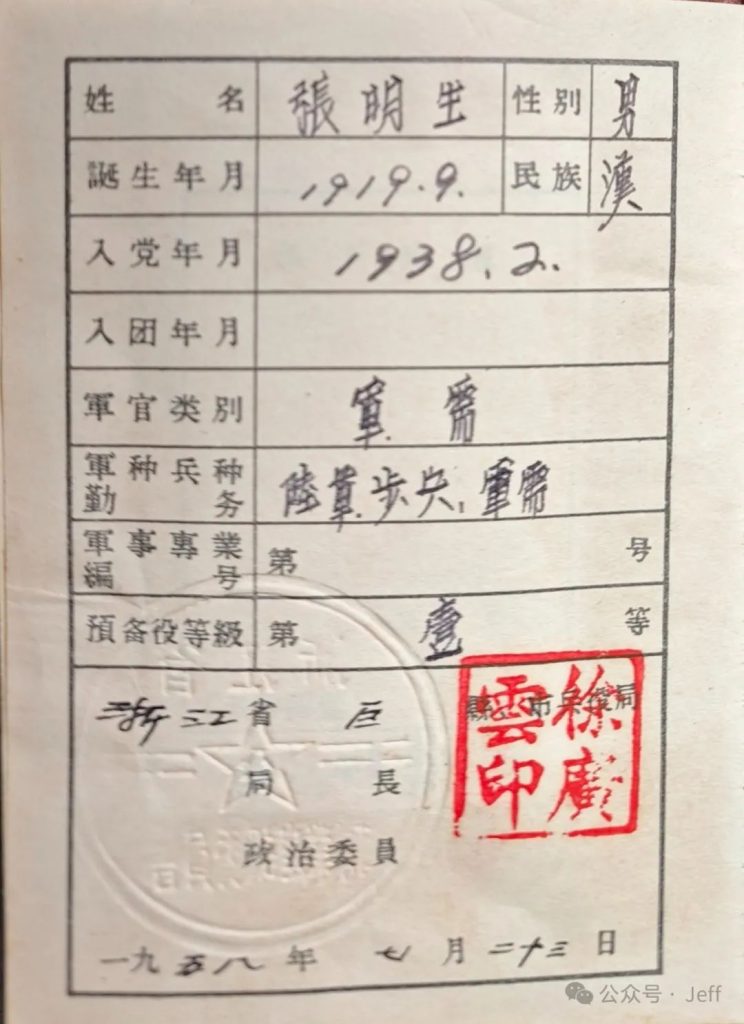 姓名 張明生 性別 男
誕生年月 1919.9. 民族 漢
入党年月 1938.2.
入团年月
軍官类別 軍需
軍种兵种
勤务 陸軍.步兵,軍需
軍事專業
編号 第 号
預备役等級 第 壹 等
浙江省 縣 市兵役局
局長
政治委員
徐廣
雲印
一九五八年 七月二十三日
公众号·Jeff